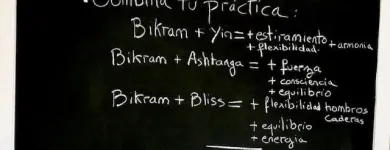 • Combina tu práctica:
Bikram + Yin = + estiramiento + armonia
+ flexibilidad.
Bikram + Ashtanga = + fuerza
+ consciencia
+ equilibrio
Bikram + Bliss = + flexibilidad hombros
caderas
+ equilibrio
+ energia